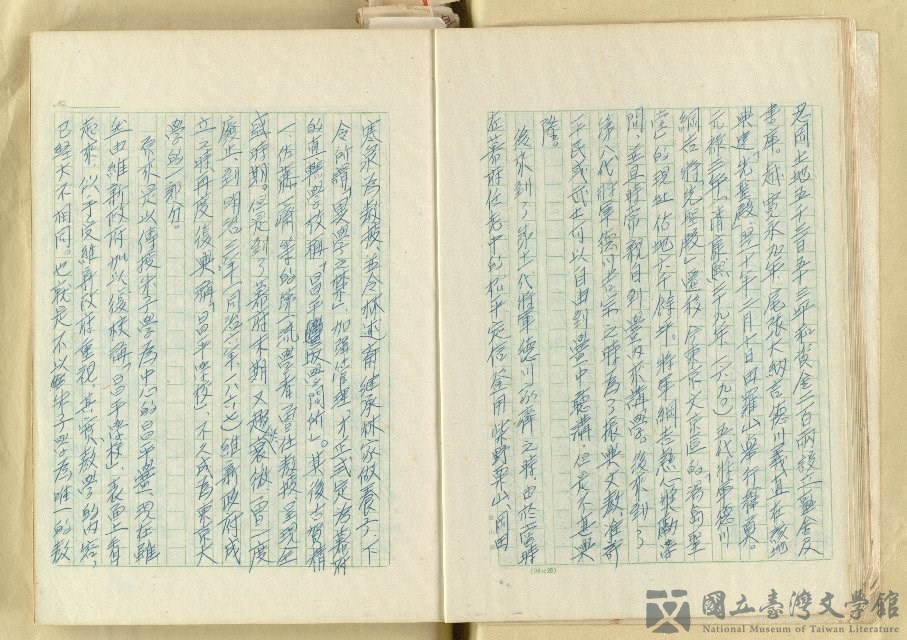 忍岡土地五千三百五十三坪和黃金二百兩設立
書庫。越寛永九年尾張大納言德川義直在該地
興建「先聖殿」
元祿三年(清康熙二十九年、一六九〇)五代將軍德川
綱吉將先聖殿遷移
的現址佔地六千餘坪。將軍綱吉
並且時常親自到
第八代將軍德川吉宗之時為了振興文教准許
平民或武士可以自由到黌中聽講但是不甚興
隆。
後來到了第十一代將軍德川家齊之時由於當時
在幕府任老中的松平定信登用柴野栗山、岡田
寒泉為教授並令林述齋繼承林家做養子、下
令所謂「異學之禁」加強管理才正式定為幕府
的直轄學校稱「昌平坂學問所」。其後古賀精
一、佐藤一齋等的第一流學者曾任教授呈現一
盛時期。但是到了幕府末期又趨衰微曾一度
廢止到明治三年(同治
立之時再度復興稱「昌平學校」不久成為東京大
學的一部分。
原來是以傳授朱子學為中心的昌平黌、現在雖
然由維新政府加以復校稱「昌平學校」表面上看
起來似乎受維新政府重視、其實教學的內容
已經大不相同。也就是不以朱子學為唯一的教
(24×25)
國立臺灣文學館
National Museum of Taiwan Literature